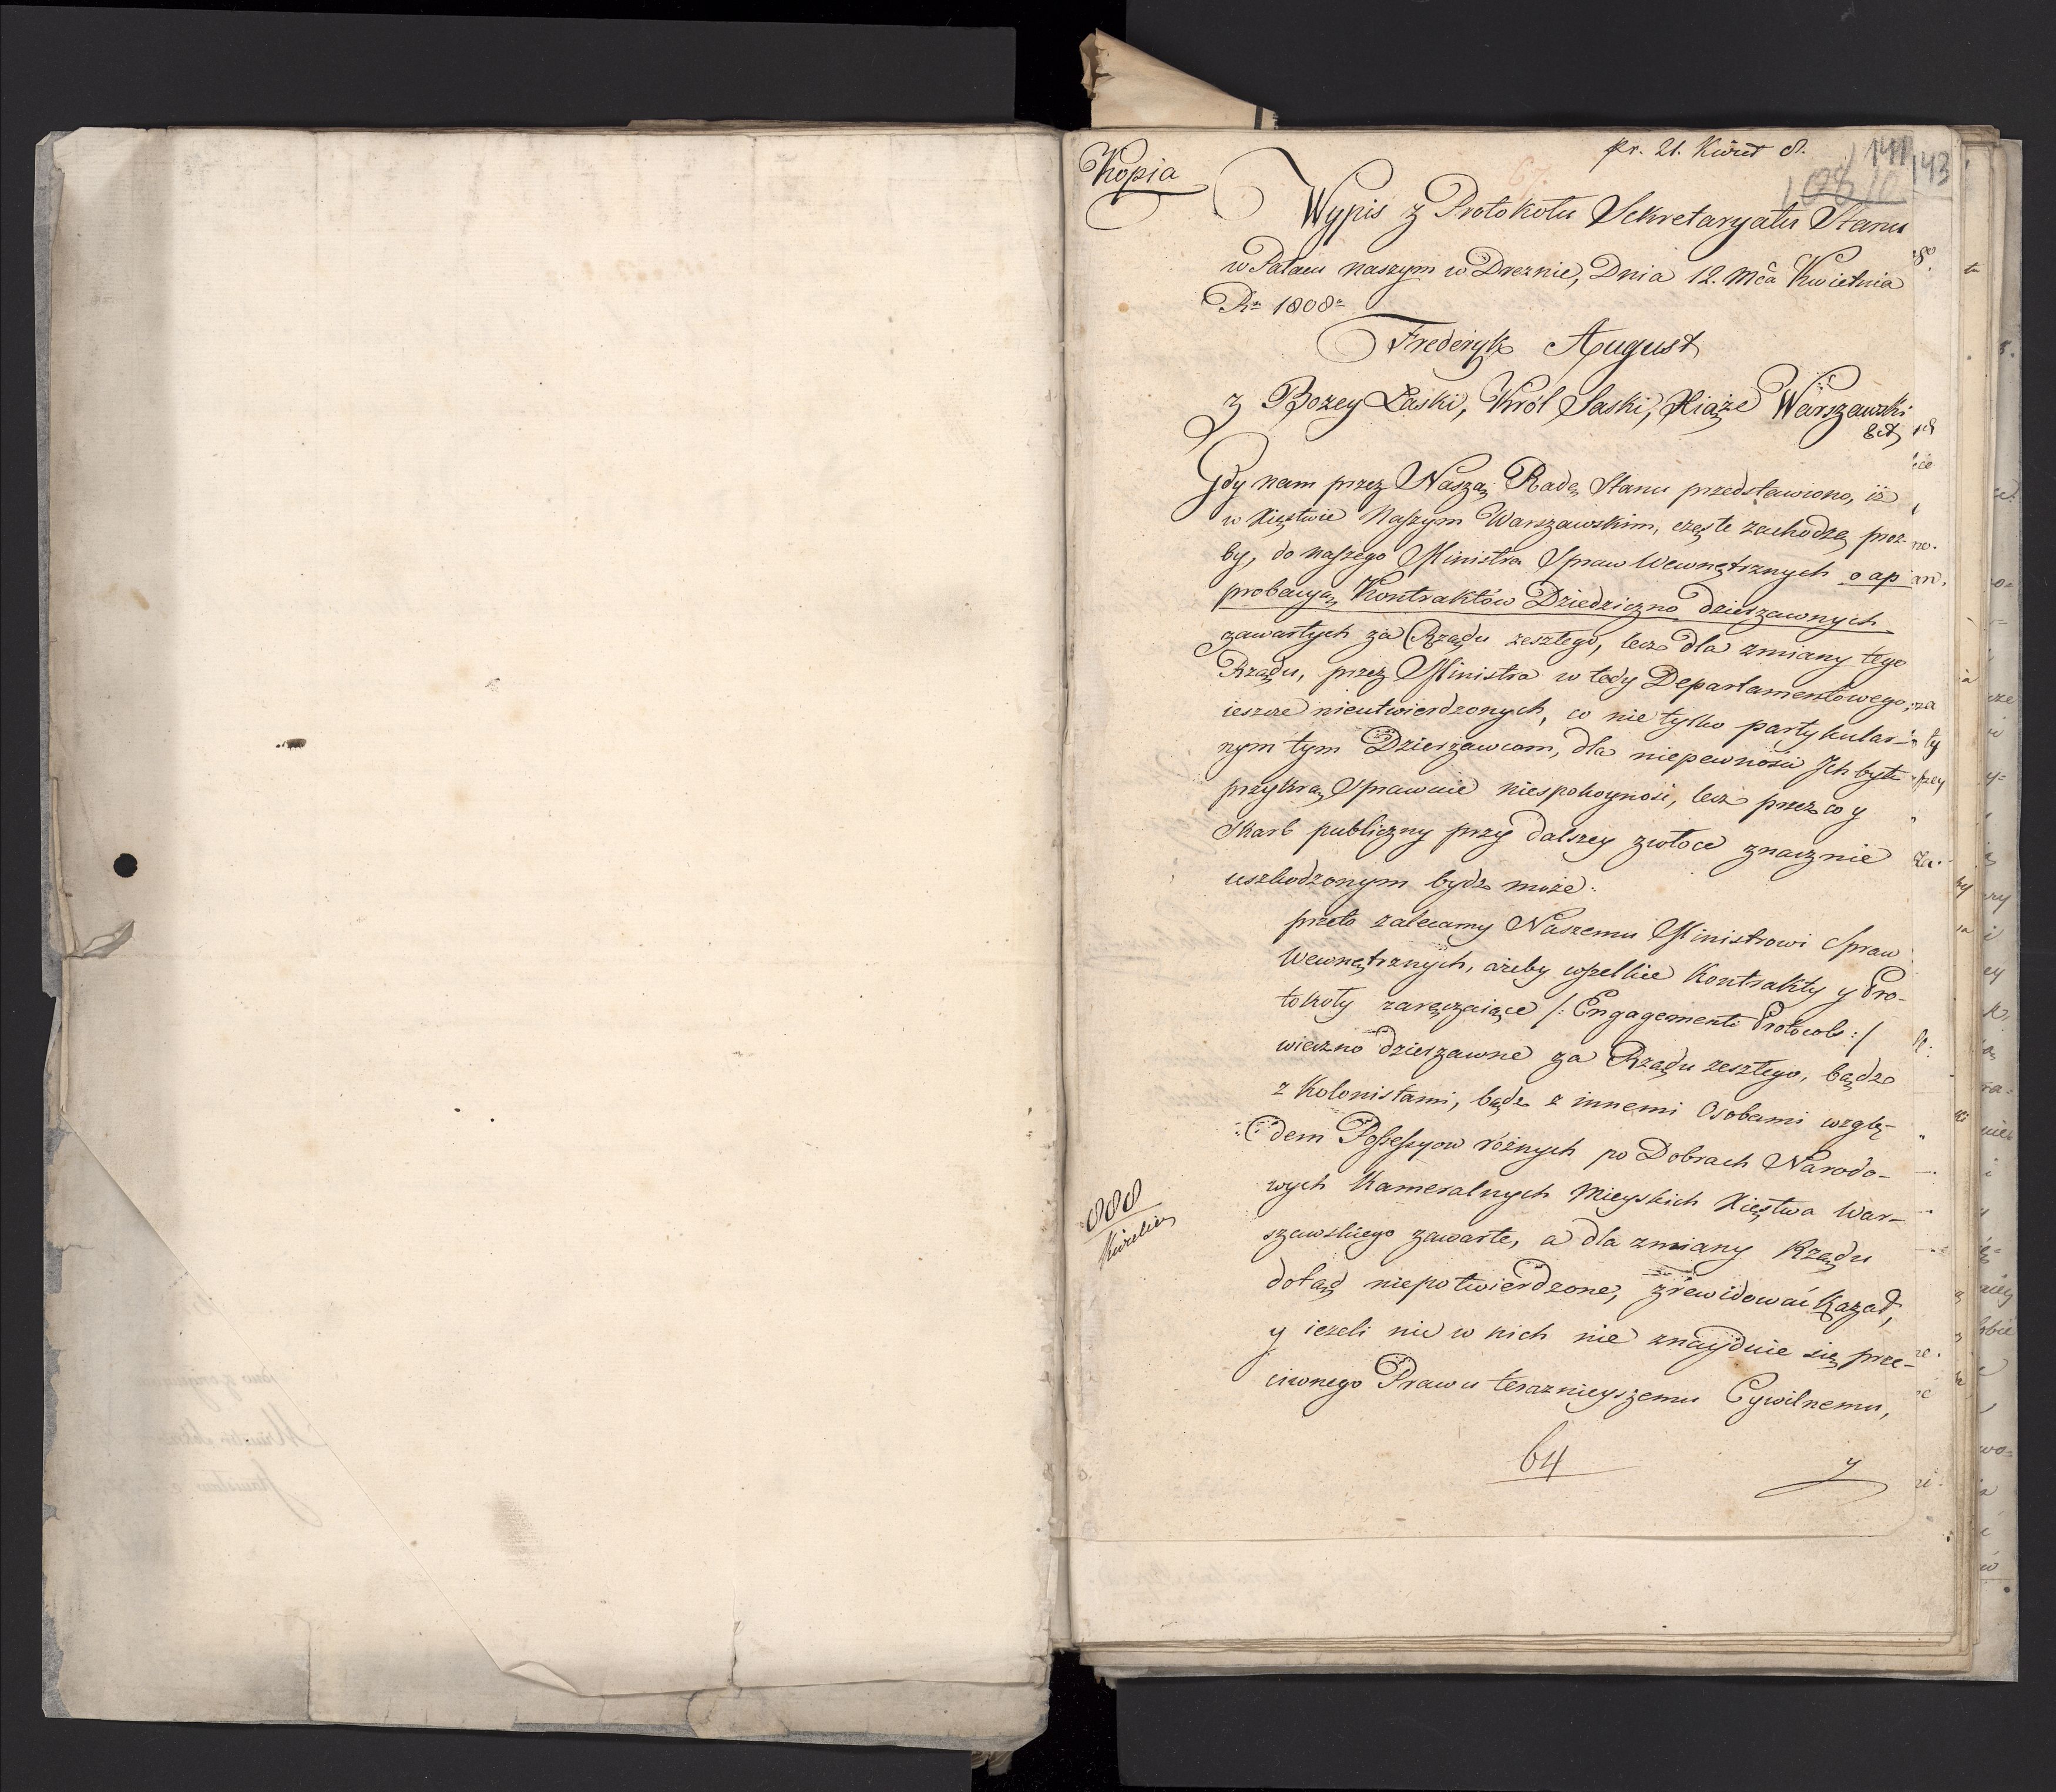 pr. 21. Kwiet 8.
141
143
Kopia
67.
Wypis z Protokołu Sekretaryatu Stanu
w Pałacu naszym w Dreznie, Dnia 12. Mca Kwietnia
Ru 1808o
Frederyk August
z Bozey Łaski, Król Saski, Xiąże Warszawski
Ect
Gdy nam przez Naszą Radę Stanu przedstawiono, iż
w Xięstwie Naszym Warszawskim, częste zachodzą proz-
by, do naszego Ministra Spraw Wewnętrznych o ap
probacyą Kontraktów Dziedziczno dzierzawnych
zawartych za Rządu zeszłego, lecz dla zmiany tego
Rządu, przez Ministra w tedy Departamentowego,
ieszcze nieutwierdzonych, co nie tylko partykular-
nym tym Dzierzawcom, dla niepewności Ich bytu
przykrą sprawuie niespokoynosć, lecz przez co y
Skarb publiczny przy dalszey zwłoce znacznie
uszkodzonym bydz może.
przeto zalecamy Naszemu Ministrowi Spraw
Wewnętrznych, ażeby wszelkie Kontrakty y Pro-
tokoły zaręczaiące /: Engagements Protocols :/
wieczno dzierzawne za Rządu zeszłego, bądz
z Kolonistami, bądz z innemi Osobami wzglę-
dem Possessyow różnych po Dobrach Narodo-
wych Kameralnych Mieyskich Xięstwa War-
szawskiego zawarte, a dla zmiany Rządu
dotąd niepotwierdzone, zrewidować kazał,
y iezeli nic w nich nie znayduie się prze-
ciwnego Prawu teraznieyszemu Cywilnemu,
888
64
y